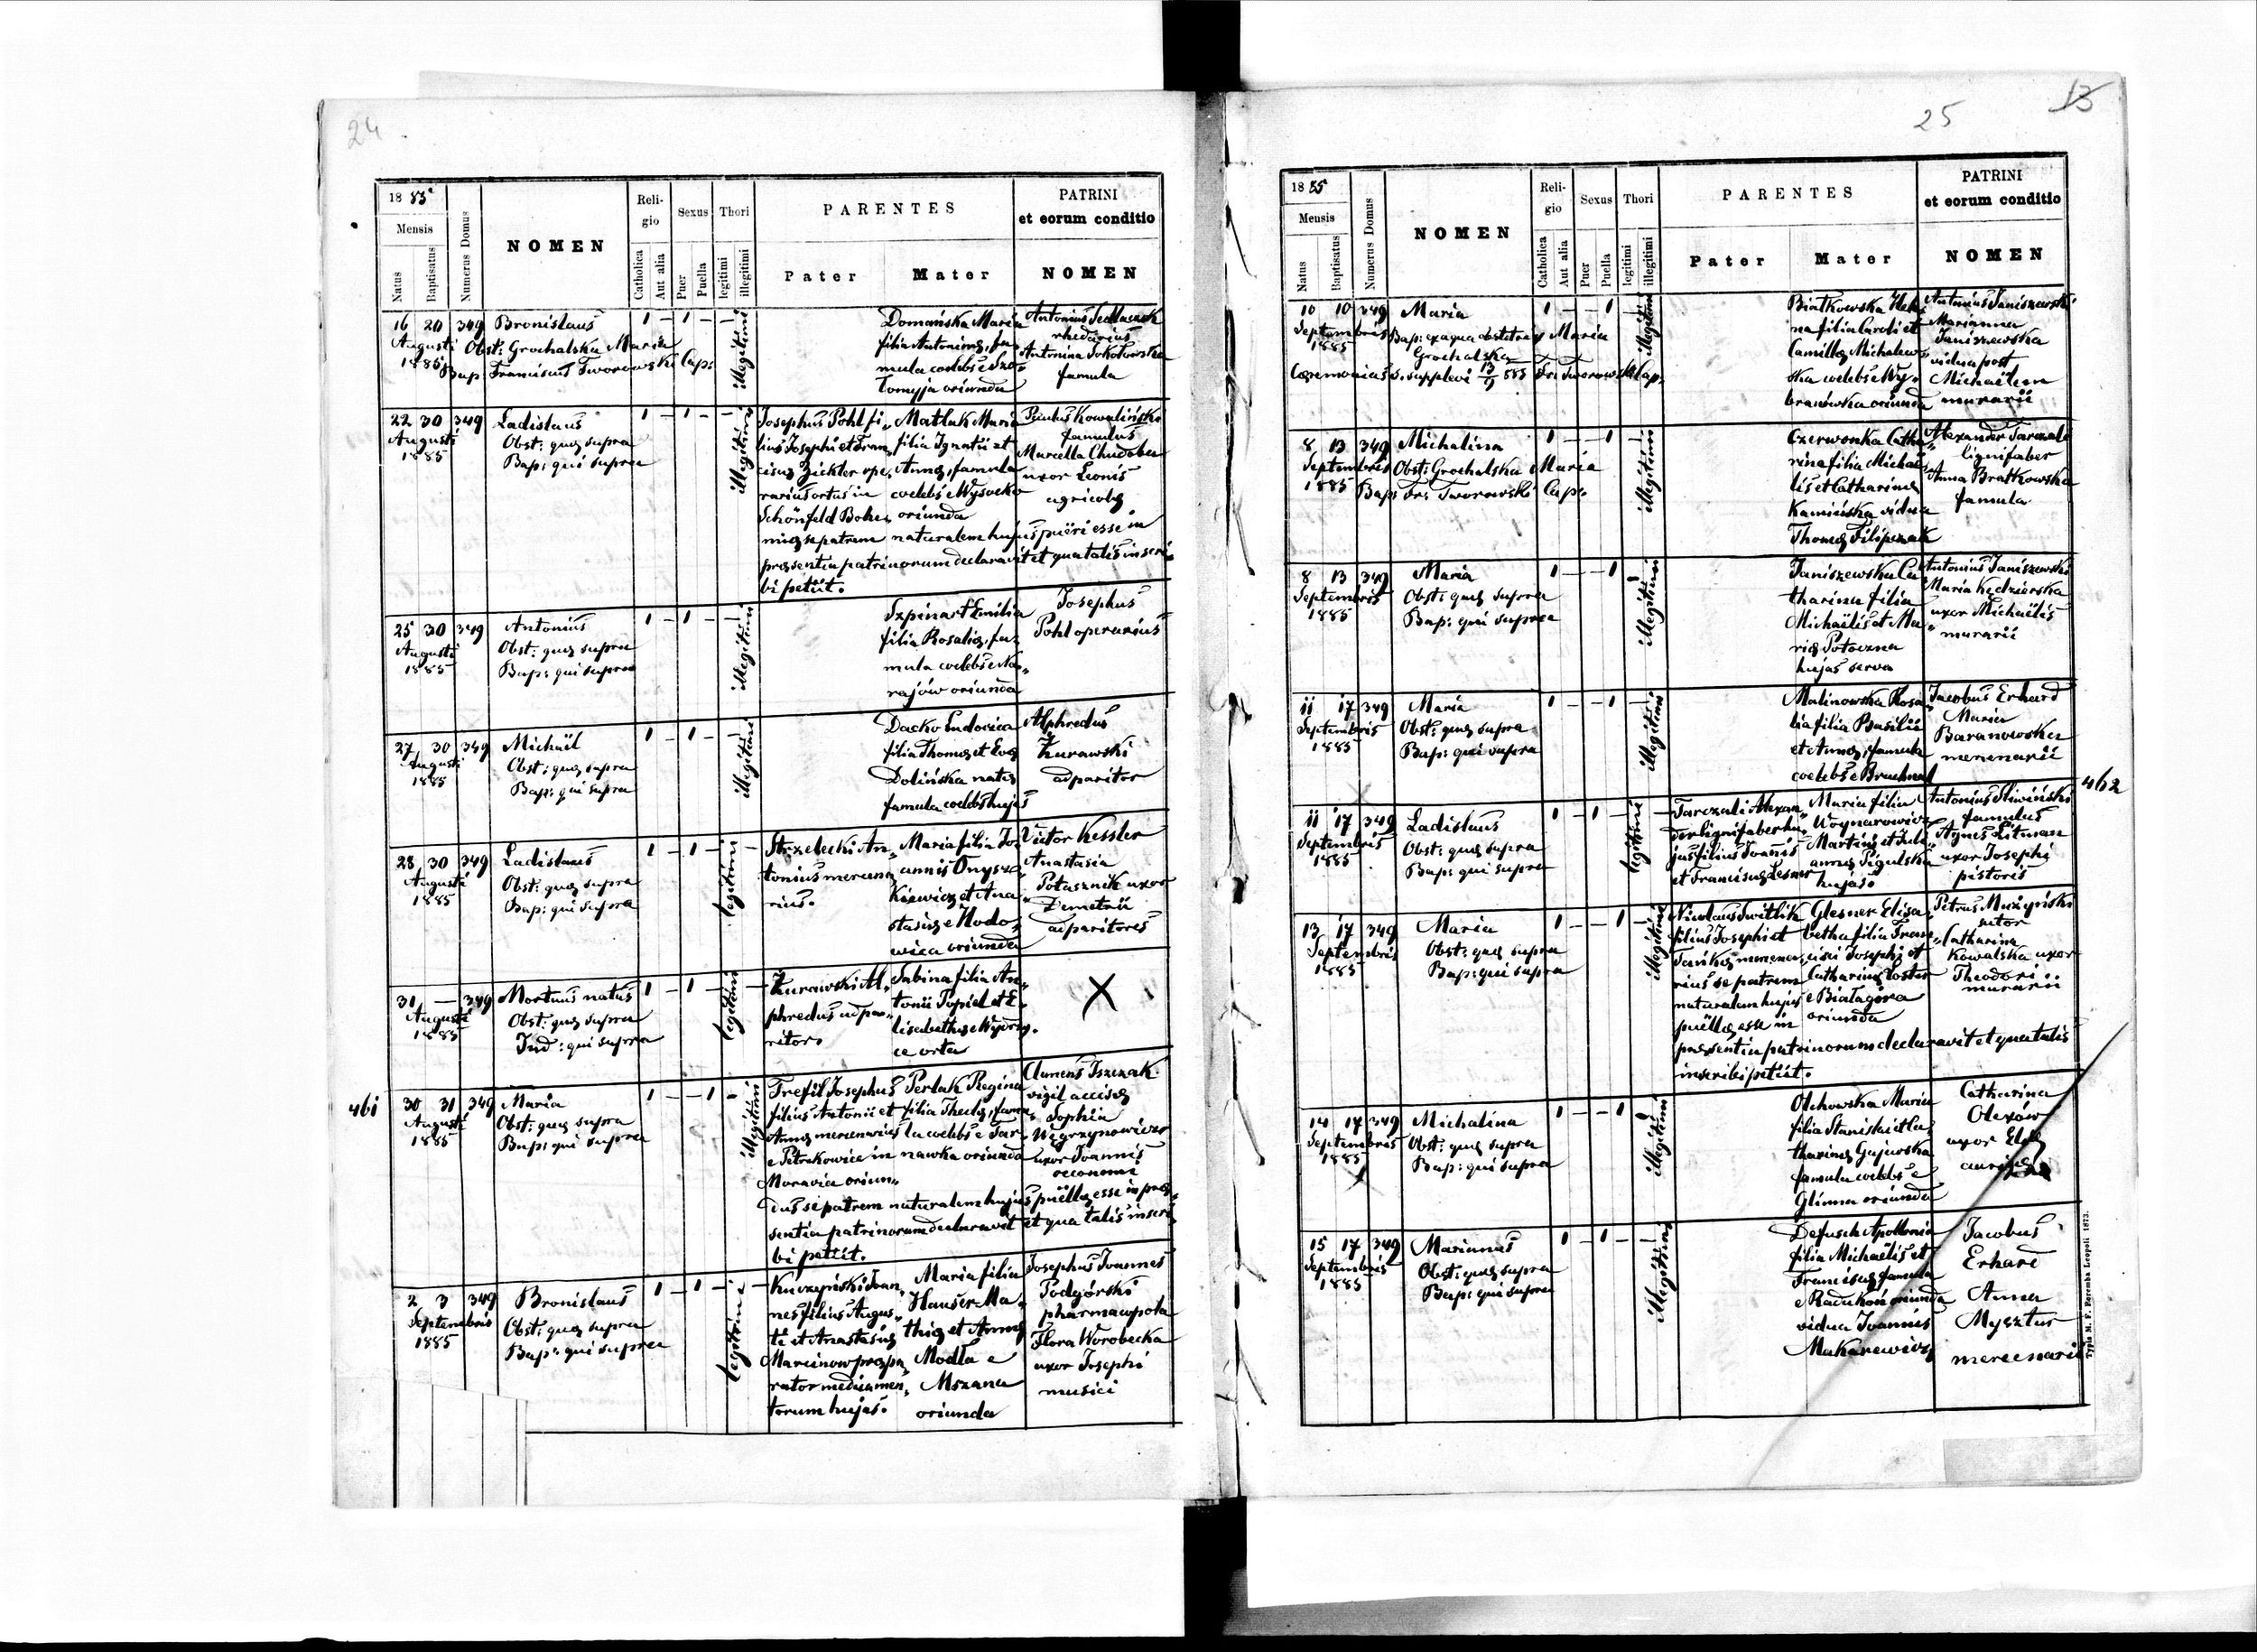 24
1885
Mensis
Natus
Baptisatus
Numerus Domus
NOMEN
Reli-
gio
Catholica
Aut alia
Sexus
Puer
Puella
Thori
legitimi
illegitimi
PARENTES
Pater
Mater
PATRINI
et eorum conditio
NOMEN
16 20 349 Bronislaus 1 – 1 – –
Augusti Obst: Grochalska Maria
1885 Bap: Franciscus Tworowski Cap:
illegitimi
Domańska Maria
filia Antoninę, fa„
mula coelebs e
oriunda
Antonius Sedlaczek
rhedarius
Antonina Sokołowska
famula
22 30 349 Ladislaus 1 – 1 – –
Augusti Obst: quę supra
1885 Bap: qui supra
illegitimi
Josephus Pohl fi„
lius Josephi et Fran„
ciscę Zickler ope„
rarius ortus in
Schönfeld Bohe„
mię se patrem naturalem hujus puëri esse in
pręsentia patrinorum declaravit et qua talis inscri„
bi petiit.
Matlak Maria
filia Ignatii et
Annę, famula
coelebs e Wysocko
oriunda
Paulus Kowaliński
famulus
Marcella Chudoba
uxor Leonis
agricolę
25 30 349 Antonius 1 – 1 – –
Augusti Obst: quę supra
1885 Bap: qui supra
illegitimi
Szpinart Emilia
filia Rosalię, fa„
mula coelebs e Na„
rajów oriunda
Josephus
Pohl operarius
27 30 349 Michaël 1 – 1 – –
Augusti Obst: quę supra
1885 Bap: qui supra
illegitimi
Dacko Ludovica
filia Thomę et Evę
Dolińska natę
famula coelebs hujas
Alphredus
Żurawski
adparitor
28 30 349 Ladislaus 1 – 1 – –
Augusti Obst: quę supra
1885 Bap: qui supra
legitimi
Strzelecki An„
tonius mercena„
rius.
Maria filia Jo„
annis Onysz„
kiewicz et Ana„
stasię e Hodo„
wica oriunda
Victor Kessler
Anastasia
Potasznik uxor
Demetrii
adparitores
31 – 349 Mortuus natus 1 – 1 – –
Augusti Obst: quę supra
1885 Ind: qui supra
legitimi
Żurawski Al„
phredus adpa„
ritor.
Sabina filia An„
tonii Popiel et E„
lisabethę e
orta
X
461
30 31 349 Maria 1 – – 1 –
Augusti Obst: quę supra
1885 Bap: qui supra
illegitimi
Trefil Josephus
filius Antonii et
Annę mercenarius
e Petrkowice in
Moravia oriun„
dus se patrem naturalem hujus puëllę esse in prę„
sentia patrinorum declaravit et qua talis inscri„
bi petiit.
Perlak Regina
filia Theclę, famu„
la coelebs e Tar„
nawka oriunda
Clemens Iszczak
vigil accisę
Sophia
Węgrzynowicz
uxor Joannis
oeconomi
2 3 349 Bronislaus 1 – 1 – –
Septembris Obst: quę supra
1885 Bap: qui supra
legitimi
Kuczyński Joan„
nes filius Augus„
ti et Anastasię
Marcinow prępa„
rator medicamen„
torum hujas.
Maria filia
Hauser Ma„
thię et Annę
Modła e
Mszana
oriunda
Josephus Joannes
Podgórski
pharmacopola
Flora Worobecka
uxor Josephi
musici
13
25
1885
Mensis
Natus
Baptisatus
Numerus Domus
NOMEN
Reli-
gio
Catholica
Aut alia
Sexus
Puer
Puella
Thori
legitimi
illegitimi
PARENTES
Pater
Mater
PATRINI
et eorum conditio
NOMEN
10 10 349 Maria 1 – – 1 –
Septembris Bap: ex aqua obstetrix Maria
1885 Grochalska
Cęremonias s. supplevi 13/9 885 Fr: Tworowski Cap:
illegitimi
Białkowska Hele„
na filia Caroli et
Camillę Michalew„
ska coelebs e Wy„
branówka oriunda
Antonius Janiszewski
Marianna
Janiszewska
vidua post
Michaëlem
murarii
8 13 349 Michalina 1 – – 1 –
Septembris Obst: Grochalska Maria
1885 Bap: Fr: Tworowski Cap:
illegitimi
Czerwonka Catha„
rina filia Michaë„
lis et Catharinę
Kamińska vidua
Thomę Filipczak
Alexander Tarczali
lignifaber
Anna Bratkowska
famula
8 13 349 Maria 1 – – 1 –
Septembris Obst: quę supra
1885 Bap: qui supra
illegitimi
Janiszewska Ca„
tharina filia
Michaëlis et Ma„
rię Potoczna
hujas serva
Antonius Janiszewski
Maria Kędzierska
uxor Michaëlis
murarii
11 17 349 Maria 1 – – 1 –
Septembris Obst: quę supra
1885 Bap: qui supra
illegitimi
Malinowska Rosa„
lia filia Basilii
et Annę, famula
coelebs e Bruchnal
Jacobus Erhard
Maria
Baranowska
mercenarii
462
11 17 349 Ladislaus 1 – 1 – –
Septembris Obst: quę supra
1885 Bap: qui supra
legitimi
Tarczali Alexan„
der lignifaber hu„
jas filius Joannis
et Franciscę Lesner
Maria filia
Woynarowicz
Martini et Juli„
annę Pigulska
hujas.
Antonius Sliwiński
famulus
Agnes Litman
uxor Josephi
pistoris
13 17 349 Maria 1 – – 1 –
Septembris Obst: quę supra
1885 Bap: qui supra
illegitimi
Nicolaus Switlik
filius Josephi et
mercena„
rius se patrem
naturalem hujus
puëllę esse in
pręsentia patrinorum declaravit et qua talis
inscribi petiit.
Glesner Elisa„
betha filia Fran„
cisci Josephi et
Catharinę Koster
e Białagóra
oriunda
Petrus Mużyński
sutor
Catharina
Kowalska uxor
Theodori
murarii
14 17 349 Michalina 1 – – 1 –
Septembris Obst: quę supra
1885 Bap: qui supra
illegitimi
Olchowska Maria
filia Stanislai et Ca„
tharinę Gajewska
famula coelebs e
Glinna oriunda
Catharina
Olexów
uxor Elię
aurigę
15 17 349 Marianus 1 – 1 – –
Septembris Obst: quę supra
1885 Bap: qui supra
illegitimi
Defusch Apollonia
filia Michaëlis et
Franciscę famula
e oriunda
vidua Joannis
Makarewicz
Jacobus
Erhard
Anna
Mysztur
mercenarii
Typis M. F. Poremba Leopoli 1873.